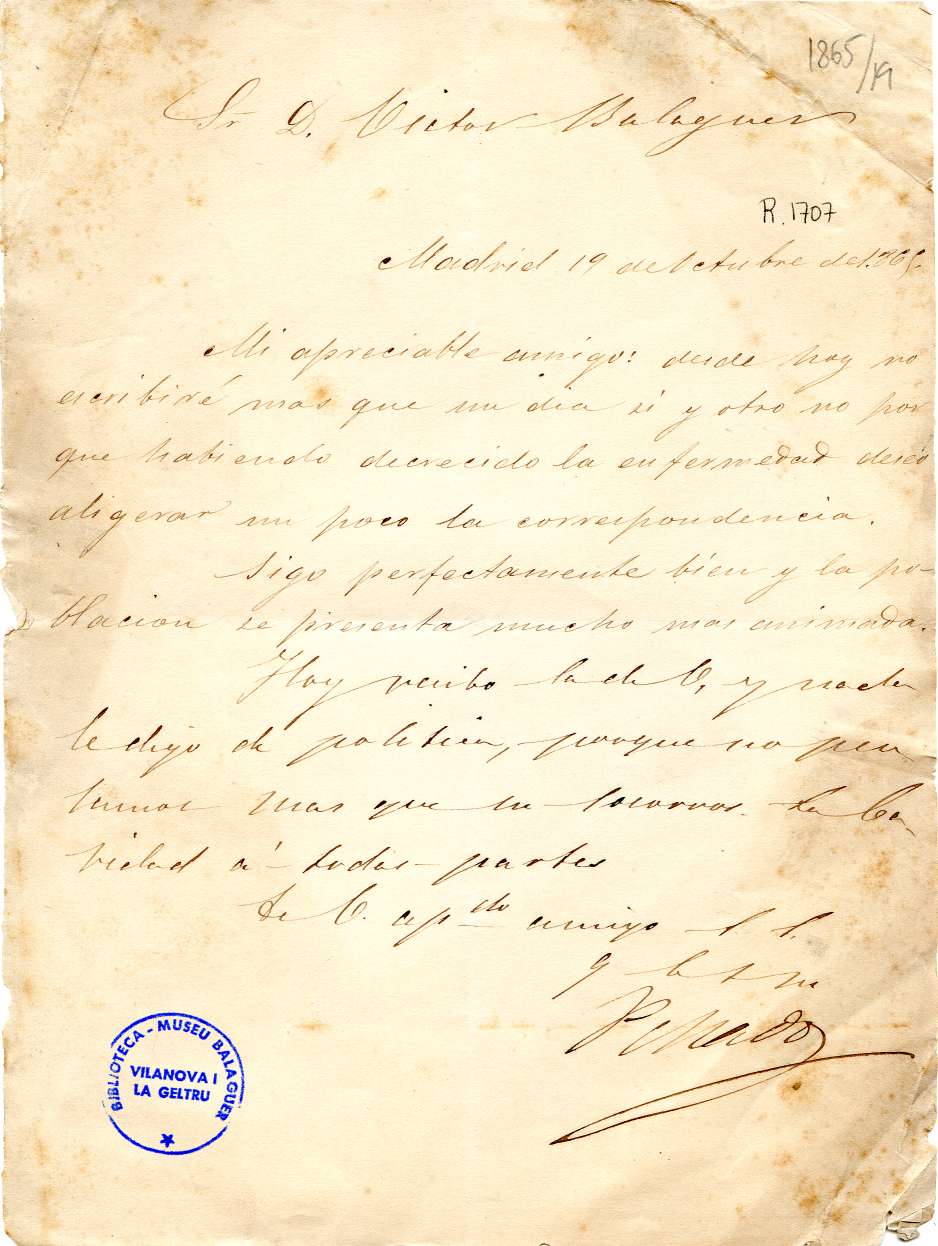 1865/19
Sr. D. Victor Balaguer
R. 1707
Madrid 19 de Octubre de 1.865.
Mi apreciable amigo: desde hoy no
escribiré mas que un dia si y otro no por
que habiendo decrecido la enfermedad deseo
aligerar un poco la correspondencia.
Sigo perfectamente bien y la po-
blacion se presenta mucho mas animada.
Hoy recibo la de V, y nada
le digo de politica, porque no pen
samos mas que en socorros. La Ca-
ridad á todas partes
De V. apdo amigo S. S.
q b s m
BIBLIOTECA - MUSEU BALAGUER
VILANOVA I
LA GELTRU